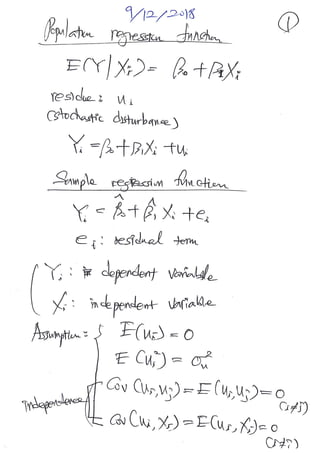 9/12/2018
①
Population regression function
E(Y|Xi) = β0 + β1Xi
residue: ui
(stochastic disturbance)
Yi = β0 + β1Xi + ui
Sample regression function
Yi = β̂0 + β̂1 Xi + ei
ei: residual term
Yi: dependent variable
Xi: independent variable
Assumption = { E(ui) = 0
E(ui²) = σu²
independence
Cov(ui, uj) = E(ui, uj) = 0
(i≠j)
Cov(ui, Xi) = E(ui, Xi) = 0